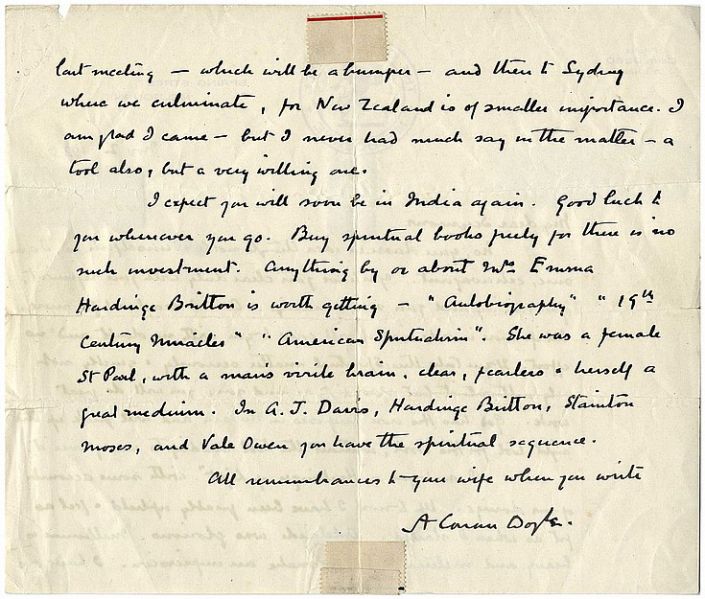 last meeting — which will be a bumper — and then to Sydney
where we culminate, for New Zealand is of smaller importance. I
am glad I came — but I never had much say in the matter — a
tool also, but a very willing one.
I expect you will soon be in India again. Good luck to
you wherever you go. Buy spiritual books freely for there is no
such investment. Anything by or about Mrs Emma
Hardinge Britton is worth getting — "Autobiography" "19th
Century Miracles" "American Spiritualism". She was a female
St Paul, with a man's virile brain, clear, fearless & herself a
great medium. In A. J. Davis, Hardinge Britton, Stainton
Moses, and Vale Owen you have the spiritual sequence.
All remembrances to your wife when you write
A Conan Doyle.